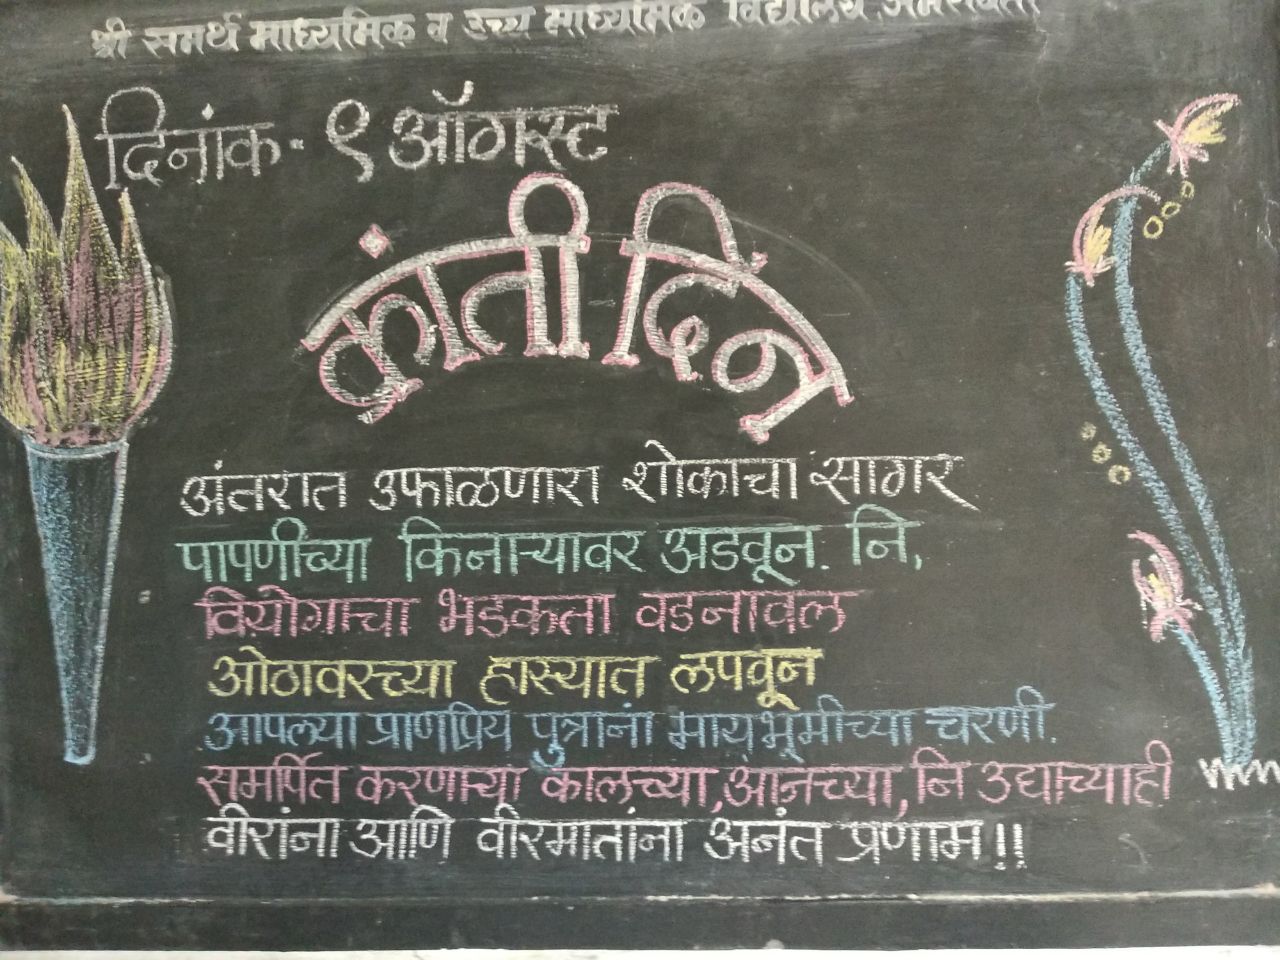 श्री समर्थ माध्यमिक व उच्च माध्यमिक विद्यालय, अमरावती
दिनांक - ९ ऑगस्ट
क्रांती दिन
अंतरात उफाळणारा शोकाचा सागर
पापणीच्या किनाऱ्यावर अडवून. नि,
वियोगाचा भडकता वडनावल
ओठावरच्या हास्यात लपवून
आपल्या प्राणप्रिय पुत्रानां मायभूमीच्या चरणी.
समर्पित करणाऱ्या कालच्या, आनच्या, नि उद्याच्याही
वीरांना आणि वीरमातांना अनंत प्रणाम !!